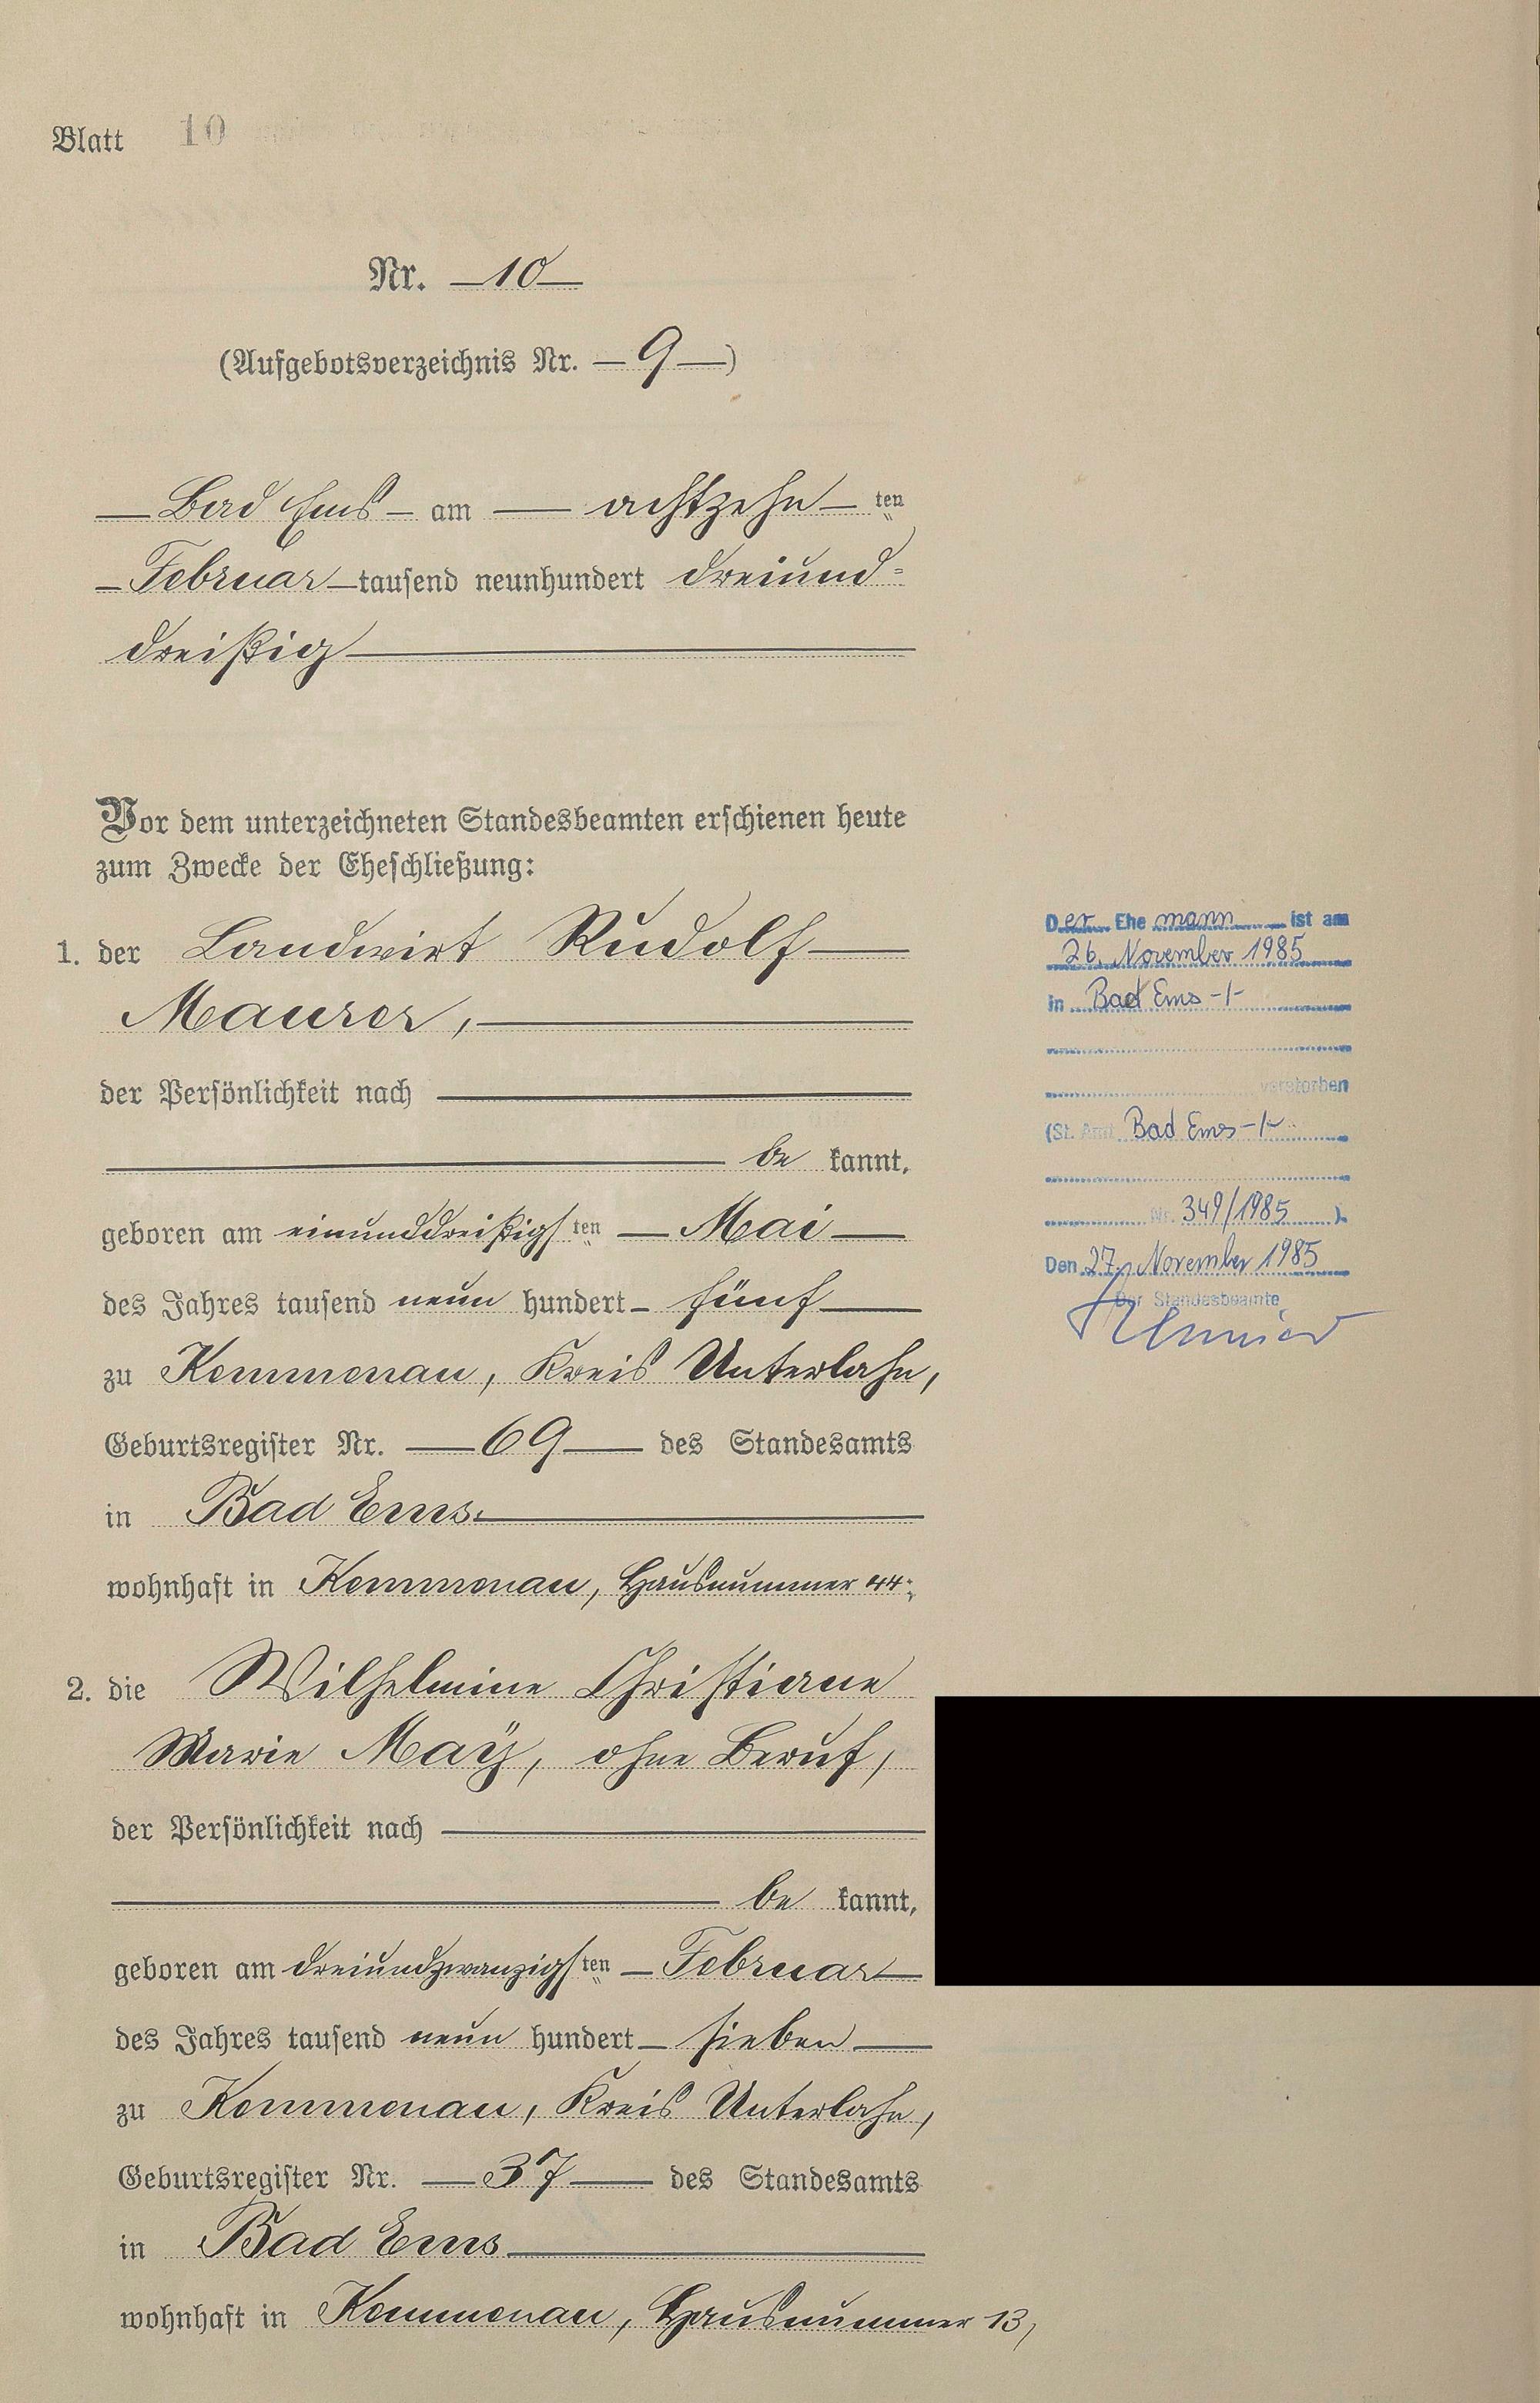 Blatt 10
Nr. 10
(Aufgebotsverzeichnis Nr. 9)
Bad Ems am achtzehn ten
Februar tausend neunhundert dreiund=
dreißig
Vor dem unterzeichneten Standesbeamten erschienen heute
zum Zwecke der Eheschließung:
1. der Landwirt Rudolf
Maurer,
der Persönlichkeit nach
be kannt,
geboren am einunddreißigsten Mai
des Jahres tausend neun hundert fünf
zu Kemmenau, Kreis Unterlahn,
Geburtsregister Nr. 69 des Standesamts
in Bad Ems.
wohnhaft in Kemmenau, Hausnummer 44;
2. die Wilhelmine Christiane
Marie Maÿ, ohne Beruf,
der Persönlichkeit nach
be kannt,
geboren am dreiundzwanzigsten Februar
des Jahres tausend neun hundert sieben
zu Kemmenau, Kreis Unterlahn,
Geburtsregister Nr. 37 des Standesamts
in Bad Ems
wohnhaft in Kemmenau, Hausnummer 13,
Der Ehemann ist am
26. November 1985
in Bad Ems -/-
verstorben
(St. Amt Bad Ems -/-
Nr. 349/1985 ).
Den 27. November 1985
Der Standesbeamte